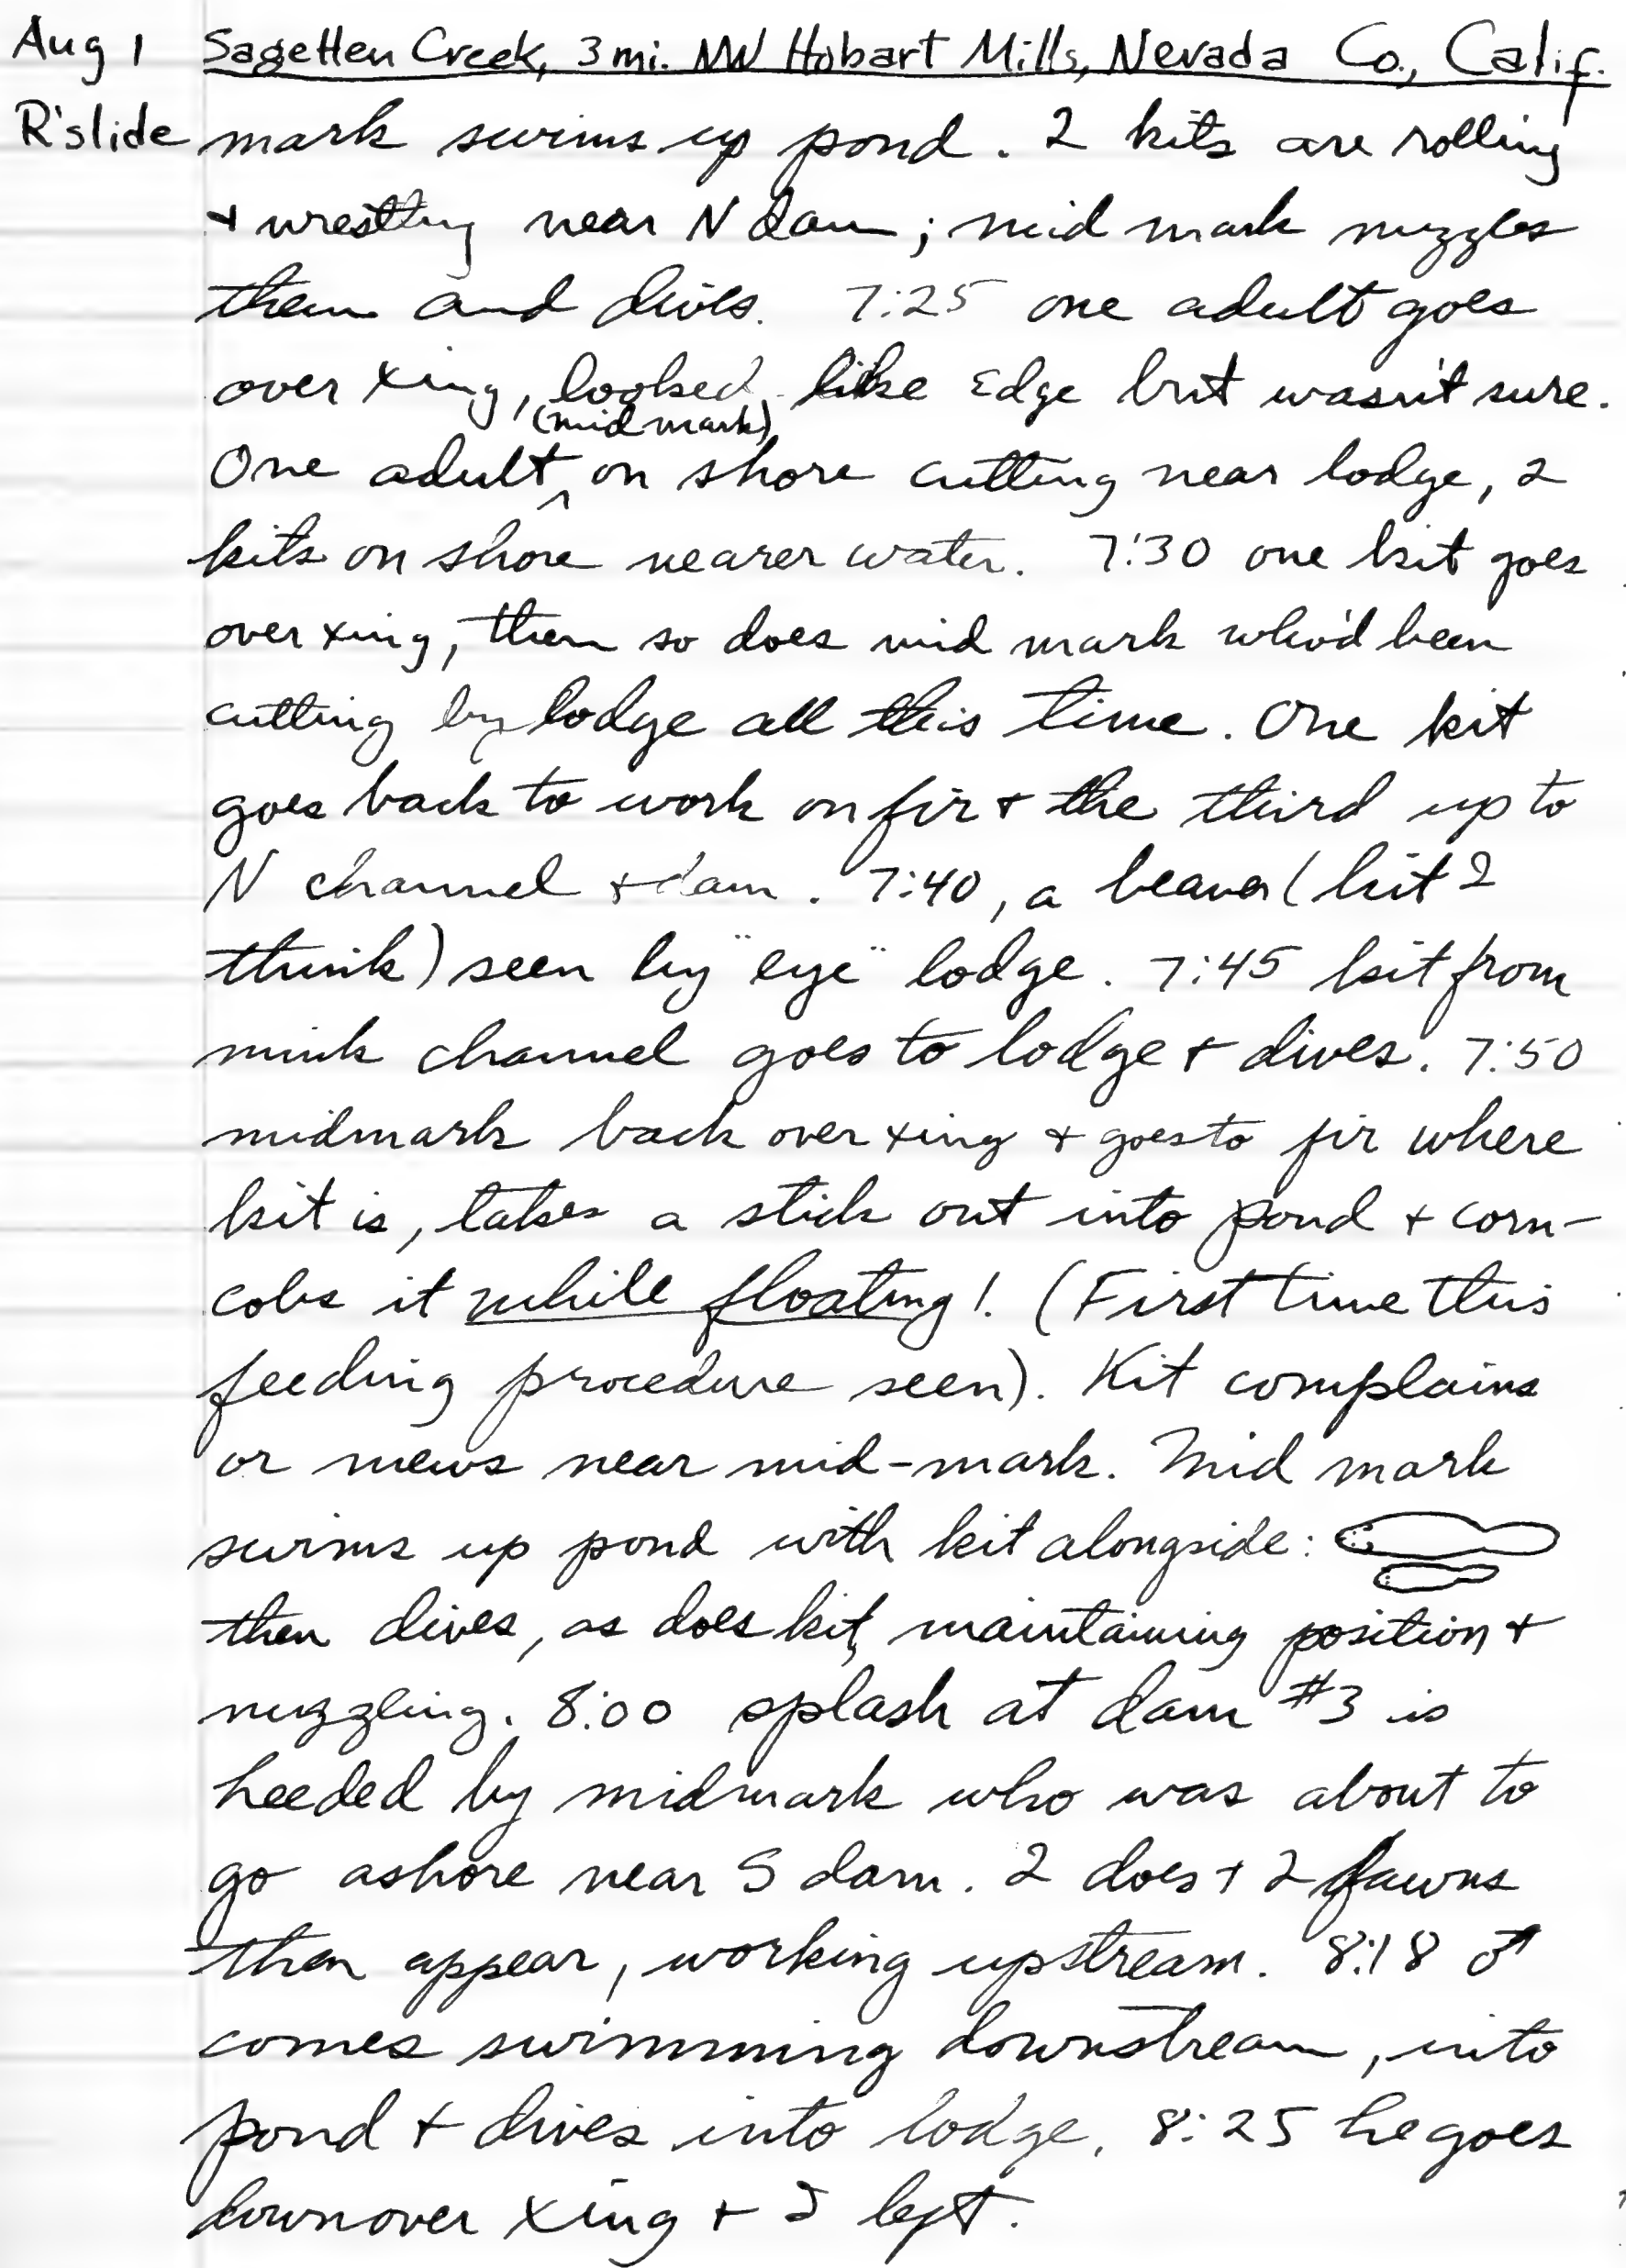 Aug 1 SageHen Creek, 3 mi. NW Hobart Mills, Nevada Co., Calif.
R'slide mark swims up pond. 2 kits are rolling
+ wrestling near N dam; mid mark nuzzles
them and dives. 7:25 one adult goes
over xing, looked like Edge but wasn't sure.
(mid mark)
One adult ^ on shore cutting near lodge, 2
kits on shore nearer water. 7:30 one kit goes
over xing, then so does mid mark who'd been
cutting by lodge all this time. One kit
goes back to work on fir + the third up to
N channel + dam. 7:40, a beaver (kit I
think) seen by "eye" lodge. 7:45 kit from
mink channel goes to lodge + dives. 7:50
midmark back over xing + goes to fir where
kit is, takes a stick out into pond + corn-
cobs it while floating! (First time this
feeding procedure seen). Kit complains
or mews near mid-mark. Mid mark
swims up pond with kit alongside:
then dives, as does kit, maintaining position +
nuzzling. 8:00 splash at dam #3 is
heeded by midmark who was about to
go ashore near S dam. 2 does + 2 fawns
then appear, working upstream. 8:18 ♂
comes swimming downstream, into
pond + dives into lodge. 8:25 he goes
down over xing + I left.